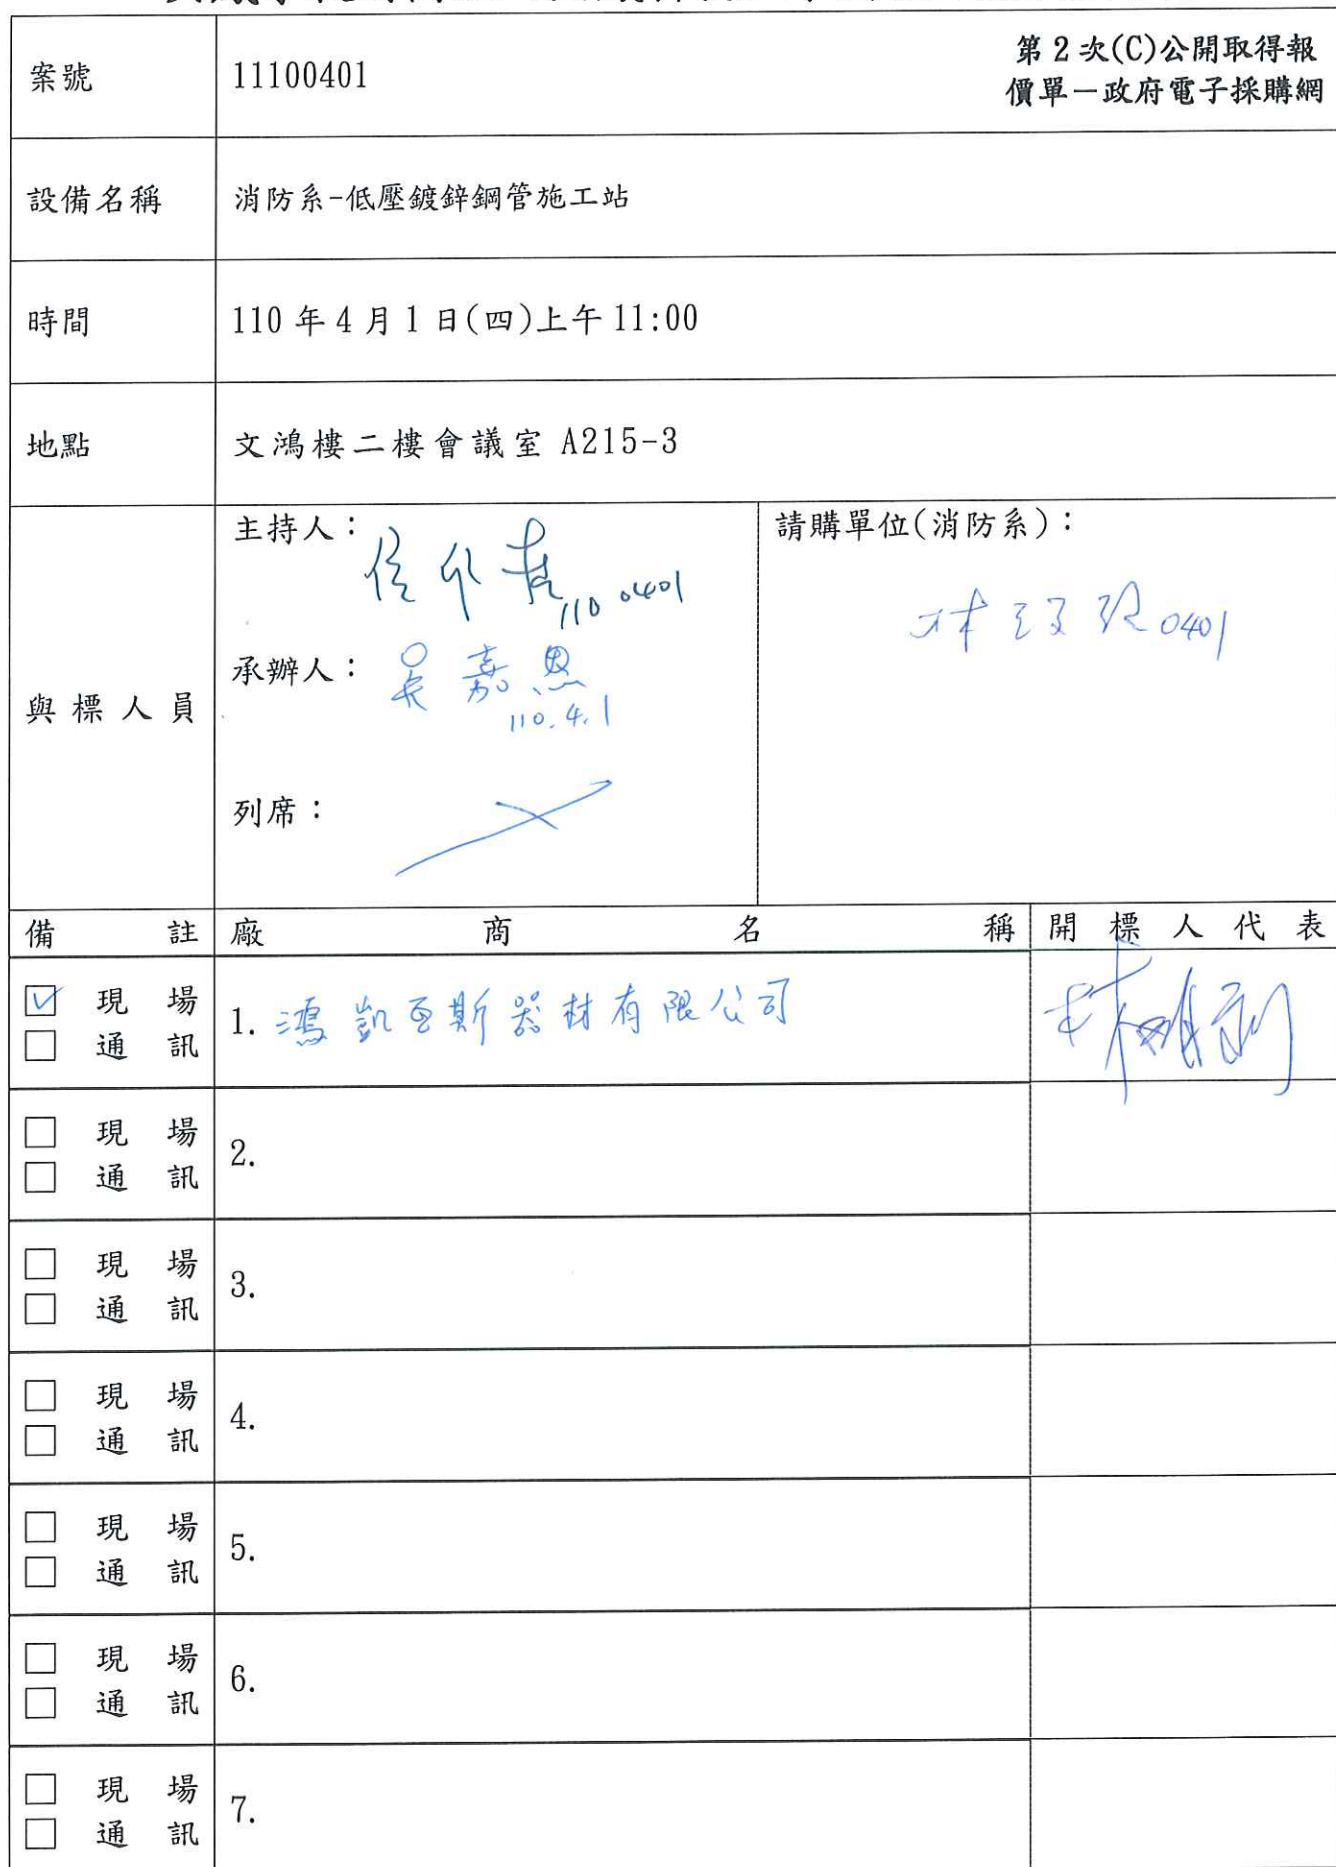 案號 11100401 第2次(C)公開取得報
價單－政府電子採購網
設備名稱 消防系-低壓鍍鋅鋼管施工站
時間 110年4月1日(四)上午11:00
地點 文鴻樓二樓會議室 A215-3
與標人員
主持人：
110 0401
承辦人： 吳嘉恩
110.4.1
列席：
請購單位(消防系)：
林 0401
備註 廠商名稱 開標人代表
☑ 現場
□ 通訊
1. 鴻凱亞斯器材有限公司
林
□ 現場
□ 通訊
2.
□ 現場
□ 通訊
3.
□ 現場
□ 通訊
4.
□ 現場
□ 通訊
5.
□ 現場
□ 通訊
6.
□ 現場
□ 通訊
7.